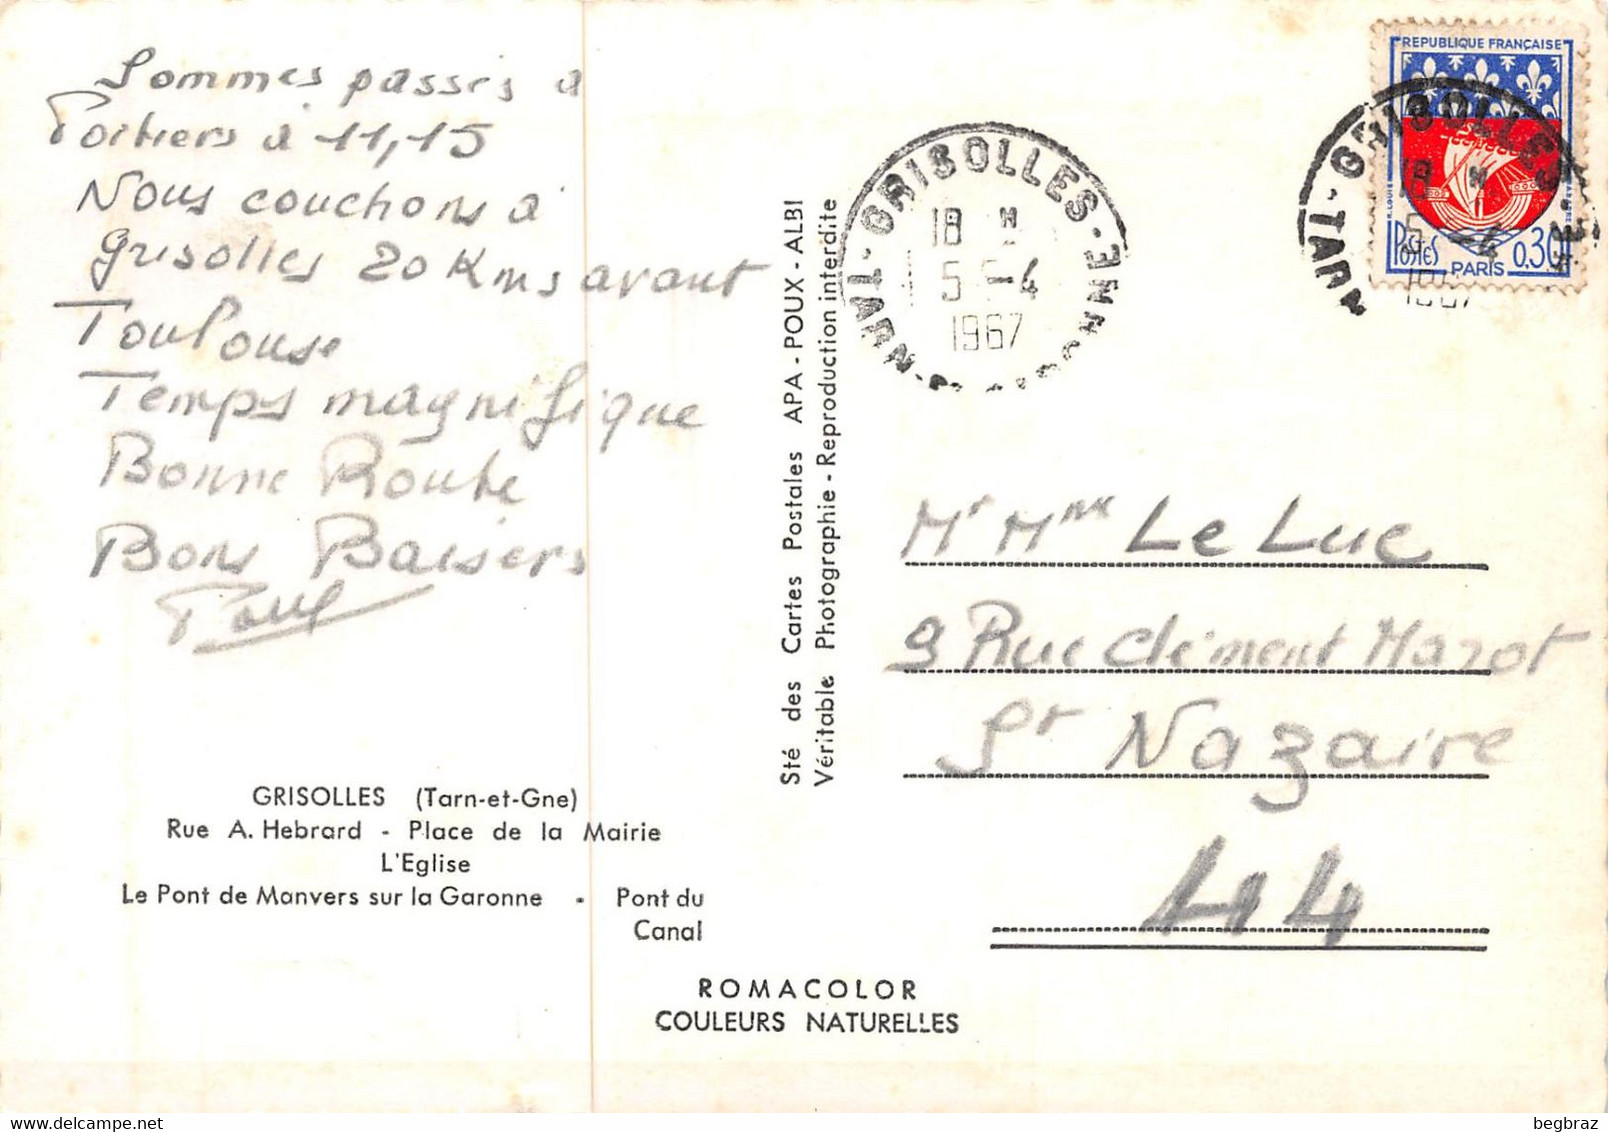 Sommes passés a
Poitiers à 11,15
Nous couchons à
Grisolles 20 Kms avant
Toulouse
Temps magnifique
Bonne Route
Bons Baisers
Paul
GRISOLLES (Tarn-et-Gne)
Rue A. Hebrard - Place de la Mairie
L'Eglise
Le Pont de Manvers sur la Garonne - Pont du
Canal
ROMACOLOR
COULEURS NATURELLES
Sté des Cartes Postales APA - POUX - ALBI
Véritable Photographie - Reproduction interdite
GRISOLLES
18 H
5-4
1967
TARN
REPUBLIQUE FRANÇAISE
POSTES
0,30
PARIS
GRISOLLES
18 H
5-4
1967
TARN
Mr Mme Le Luc
9 Rue Clément Marot
St Nazaire
44
begbraz